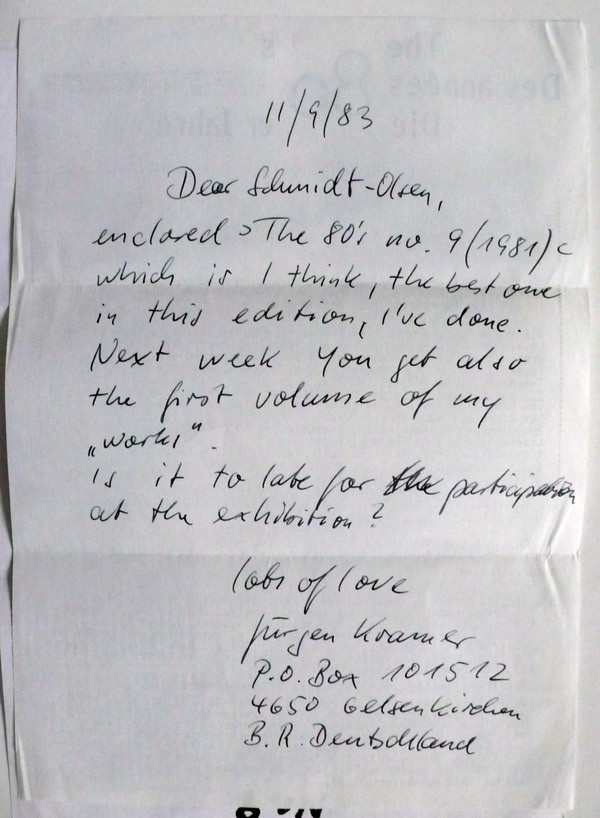 11/9/83
Dear Schmidt-Olsen,
enclosed >The 80's no. 9 (1981)<
which is I think, the best one
in this edition, I've done.
Next week you get also
the first volume of my
„works".
Is it to late for the participation
at the exhibition?
lobs of love
Jürgen Kramer
P.O. Box 101512
4650 Gelsenkirchen
B.R. Deutschland
The
Des années
Die er Jahre